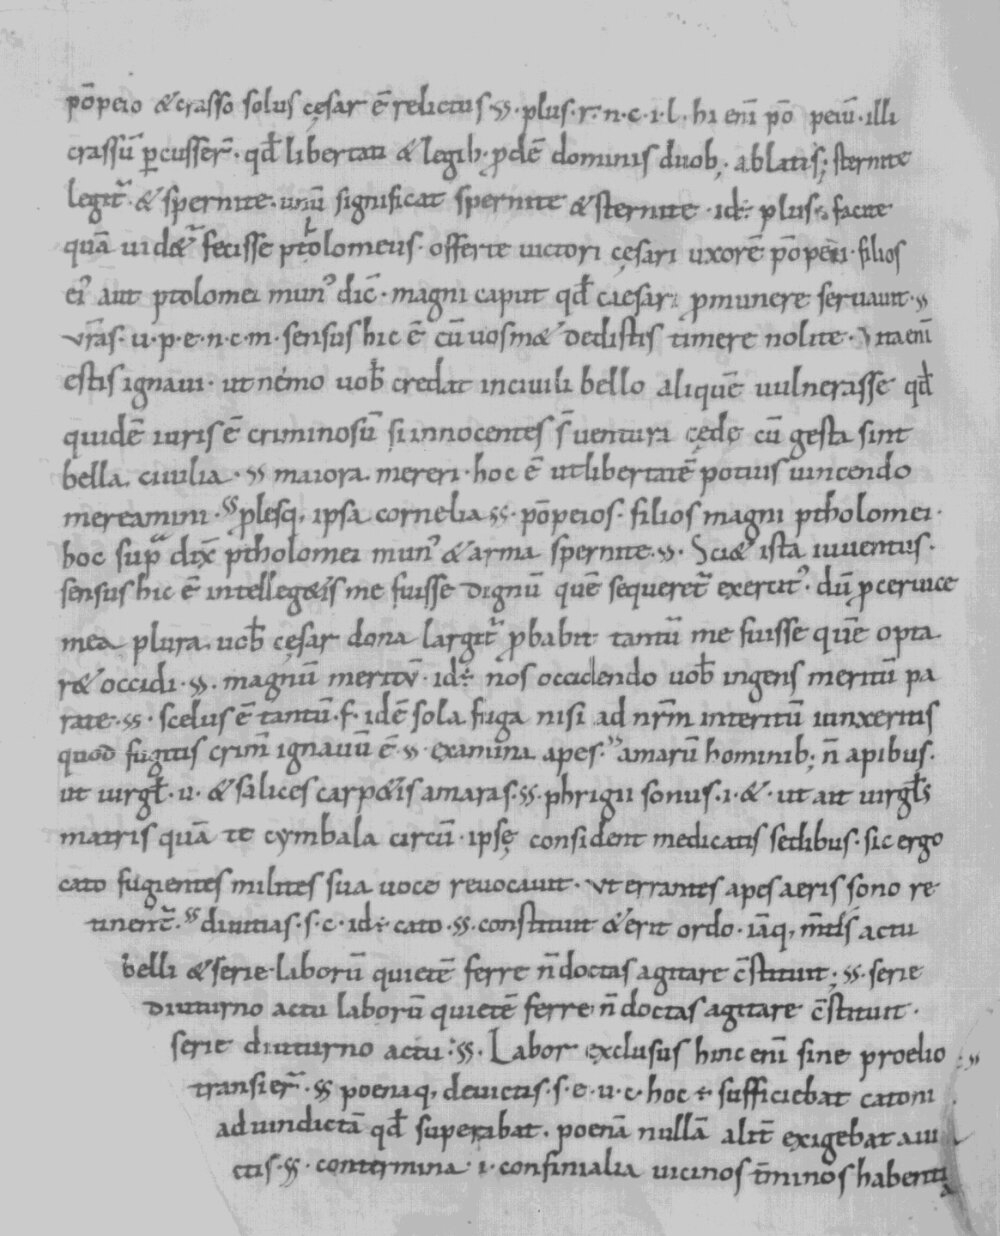 põpeio & crasso solus cęsar ē relictus ·plus·r·n·c·i·l· hi enī põ peiū·illi
crassū ꝑcusser̄·qđ libertati & legib; ꝓdēē dominis duob; ablatis; sternite
legit̄·& spernite·unū significat spernite & sternite·id÷ plus· facite
quā uidet̄ fecisse ptolomeus·offerte uictori cęsari uxorē põpei·filios
ei' aut ptolomei mun' dic̄·magni caput qđ caesari ꝓmunere seruauit·
vr̄as·u·p·e·n·c·m·sensus hic ē cū uos m& dedistis timere nolite· Ita enī
estis ignaui·ut nemo uob̄ credat inciuili bello aliquē uulnerasse qđ
quidē iuris ē criminosū si innocentes s̄ uenturi cęde cū gesta sint
bella ciuilia· maiora mereri·hoc ē ut libertatē potius uincendo
mereamini· plesq; ipsa cornelia · põpeios·filios magni ptholomei·
hoc sup̄ dix̄ ptholomei mun' & arma spernite· Sci& ista iuuentus·
sensus hic ē intelleg&is me fuisse dignū quē sequeret̄ exercit'·dū ꝓ ceruice
mea plura uob̄ cęsar dona largit̄ ꝓbabit tantū me fuisse quē opta
r& occidi· magnū meritū·id÷ nos occidendo uob̄ ingens meritū pa
rate· scelus ē tantū·f·idē sola fuga nisi ad nr̄m interitū iunxeritis
quod fugitis crim̄ ignauū ē· examina apes· amarū hominib; n̄ apibus·
ut uirgł·u·& salices carp&is amaras· phrigii sonus·i·&·ut ait uirgłs
matris quā te cymbala circū·ipsę consident medicatis sedibus·sic ergo
cato fugientes milites sua uoce reuocauit·ut errantes apes aeris sono re
tinent̄· diuitias·s·c·id÷ cato· constituit & erit ordo·iāq; mīls actu
belli & serie laborū quietē ferre n̄ doctas agitare c̄stituit; serie
diuturno actu laborū quietē ferre n̄ doctas agitare c̄stituit·
serie diuturno actu· Labor exclusus hinc enī sine proelio
transier̄· poenaq; deuictis·s·e·u·c·hoc÷ sufficiebat catoni
ad uindictā qđ superabat·poenā nullā alit̄ exigebat a ui
ctis· contermina·i·confinialia uicinos t̄minos habenti